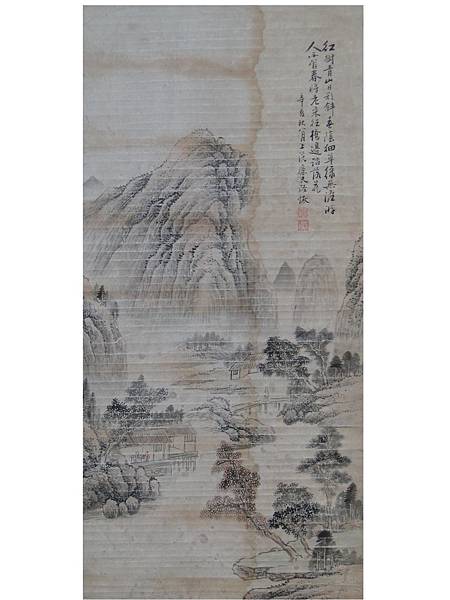 紅樹青山日影斜陰細草綠無涯游
人不管春將老來往橋邊踏落花
辛酉秋八月上浣